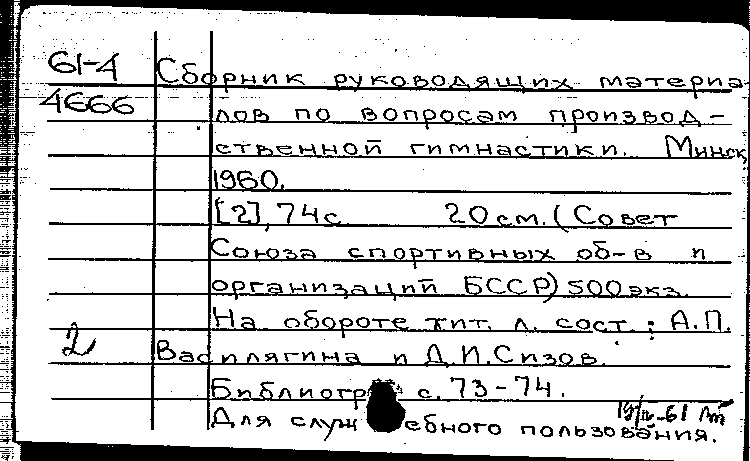 61-4 Сборник руководящих материа-
4666 лов по вопросам производ-
ственной гимнастики. Минск,
1960.
[2], 74с 20см. (Совет
Союза спортивных об-в и
организаций БССР) 500экз.
На обороте тит. л. сост.: А.П.
2 Василягина и Д.И.Сизов.
Библиогр. с. 73-74.
Для служебного пользования.